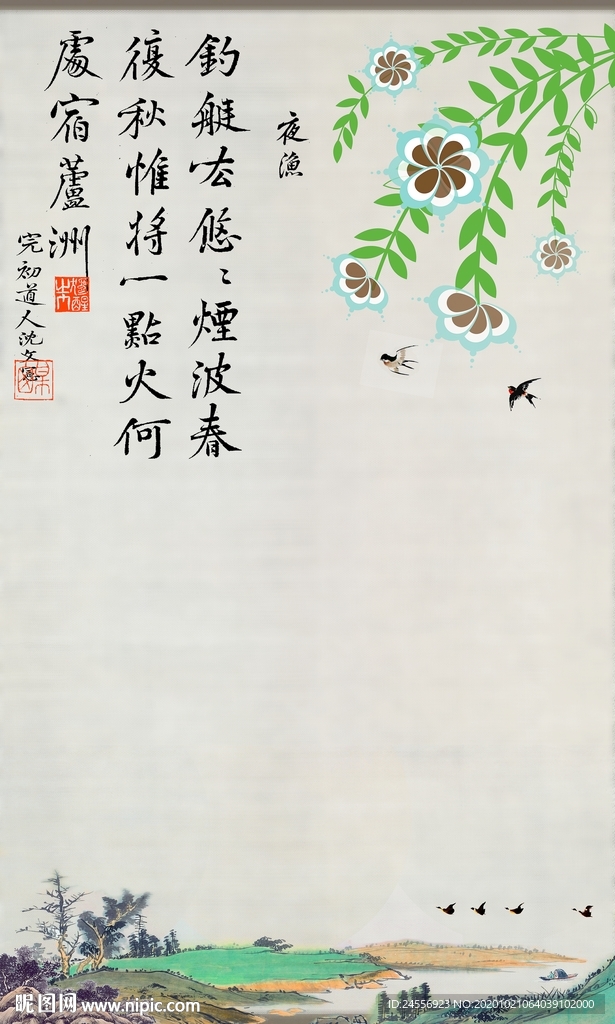 夜漁
釣艇去悠〻煙波春
復秋惟將一點火何
處宿蘆洲
完初道人沈文憲
昵图网 www.nipic.com
ID:24556923 NO:20201021064039102000